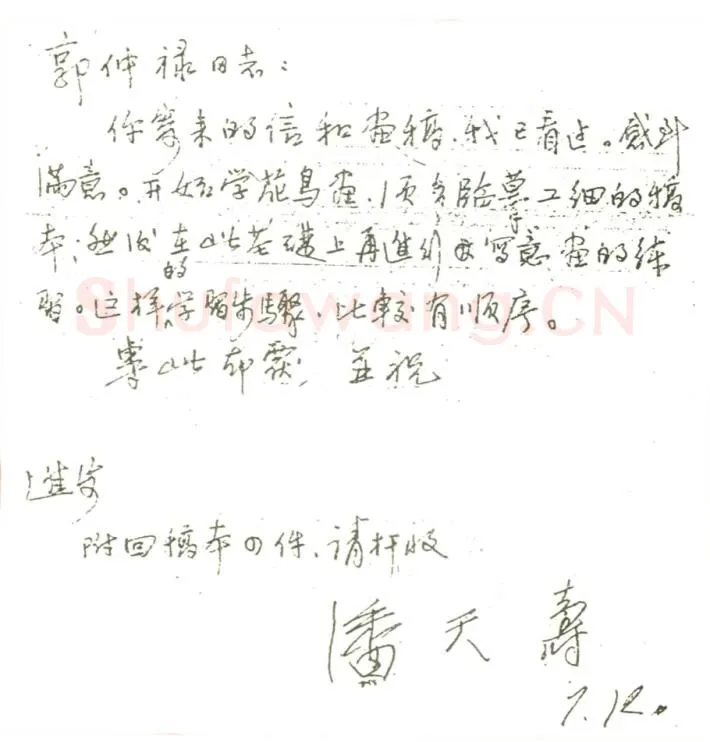 郭仲禄同志：
你寄来的信和画稿，我已看过。感到
满意。开始学花鸟画，须多临摹工细的稿
本；然后在此基础上再进行写意画的练
习。这样的学习步骤，比较有顺序。
专此即覆 並祝
进安
附回稿本の件，请检收
潘天壽
7.12.
Shufawang.CN